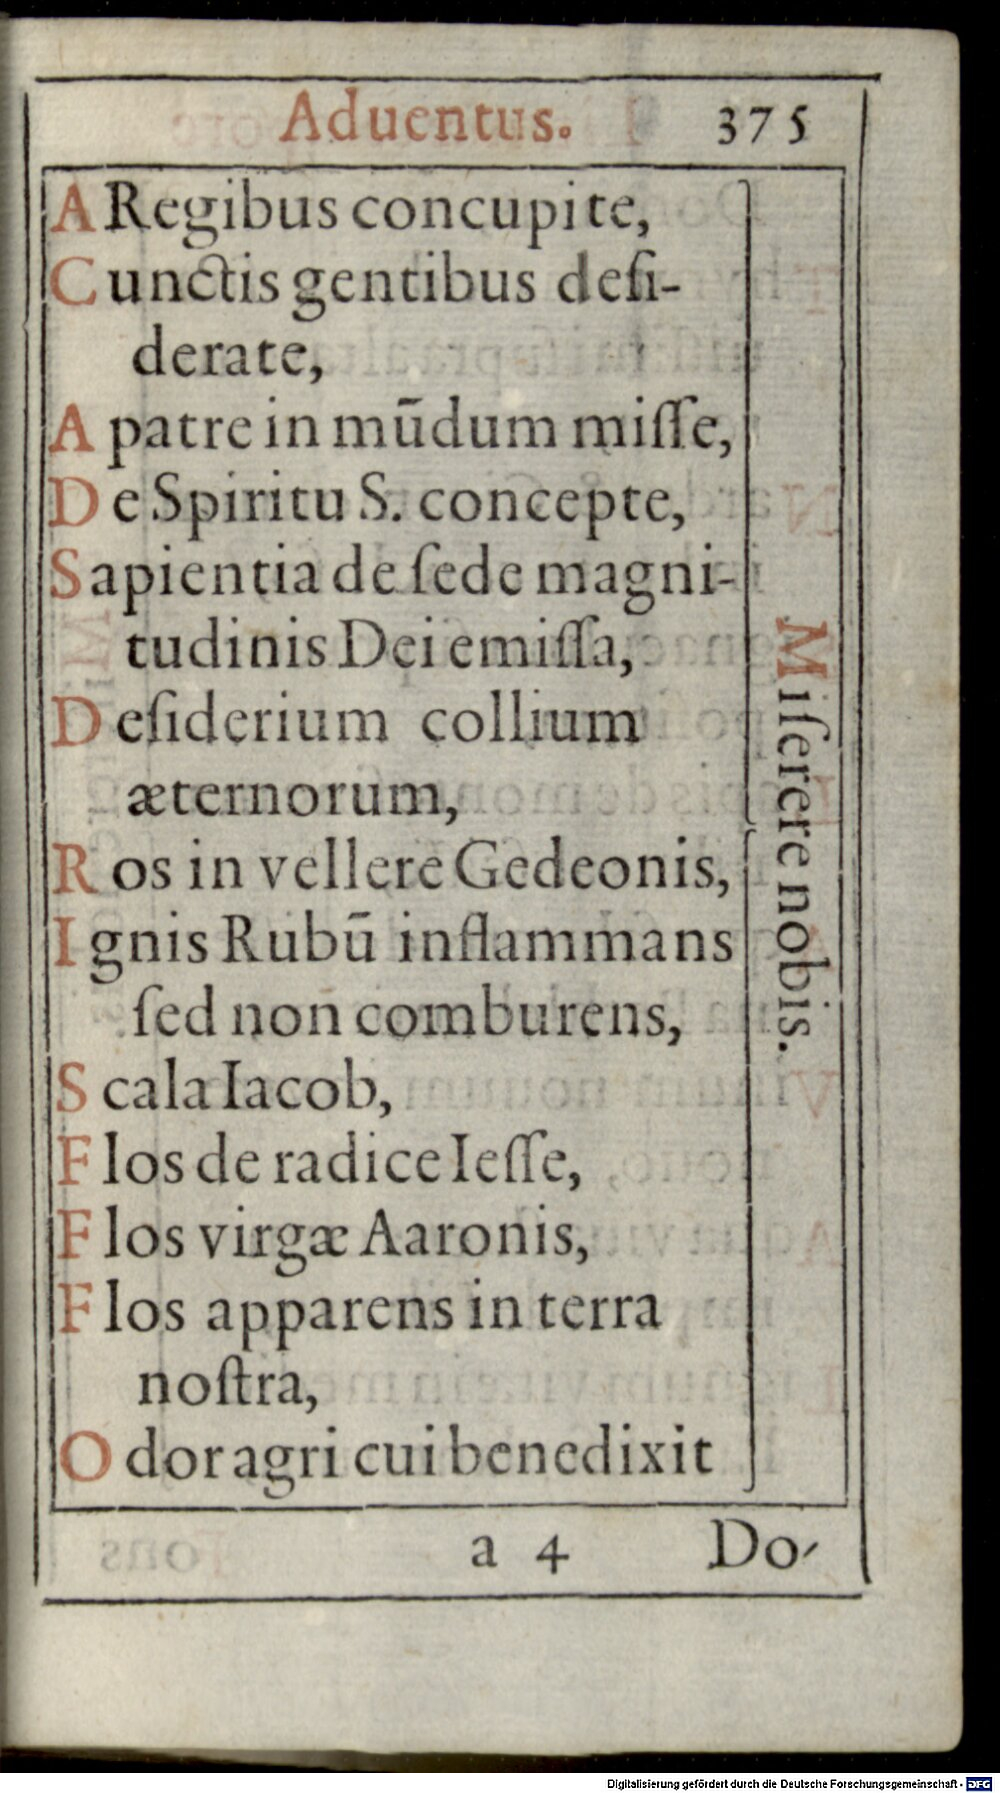 Aduentus. 375
A Regibus concupite,
Cunctis gentibus desi-
derate,
A patre in mūdum misse,
De Spiritu S. concepte,
Sapientia de sede magni-
tudinis Dei emissa,
Desiderium collium
æternorum,
Ros in vellere Gedeonis,
Ignis Rubū inflammans
sed non comburens,
Scala Iacob,
Flos de radice Iesse,
Flos virgæ Aaronis,
Flos apparens in terra
nostra,
Odor agri cui benedixit
Miserere nobis.
a 4 Do-
Digitalisierung gefördert durch die Deutsche Forschungsgemeinschaft - DFG